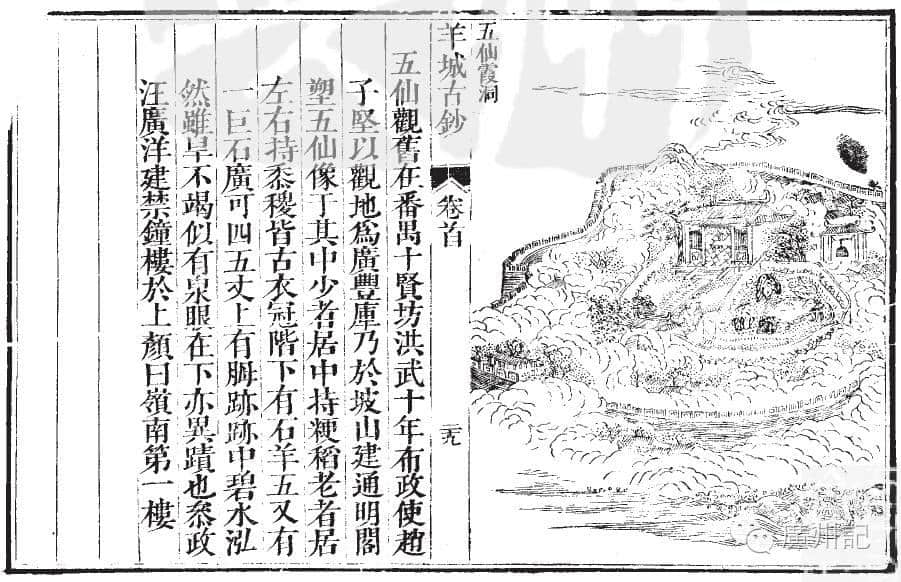 五仙霞洞
羊城古鈔
卷首
五仙觀舊在番禺十賢坊洪武十年布政使趙
子堅以觀地爲廣豐庫乃於坡山建通明閣
塑五仙像于其中少者居中持粳稻老者居
左右持黍稷皆古衣冠階下有石羊五又有
一巨石廣可四五丈上有拇跡跡中碧水泓
然雖旱不竭似有泉眼在下亦異蹟也叅政
汪廣洋建禁鐘樓於上顏曰嶺南第一樓
廣州記